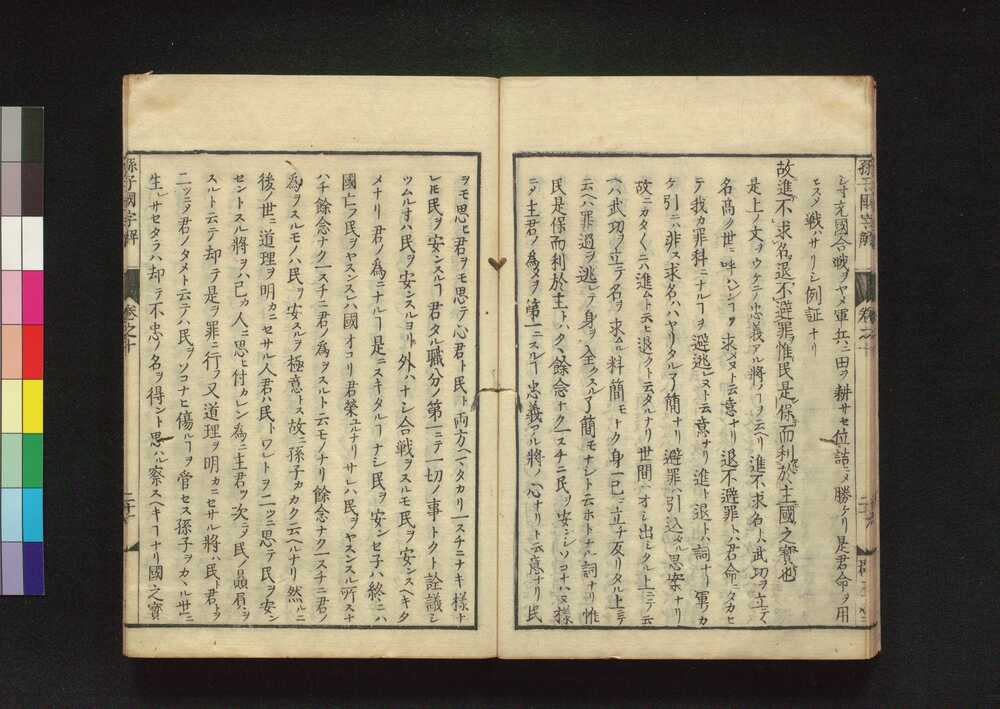 シ守充國合戦ヲヤメ軍兵ニ田ヲ耕サセ位詰ニメ勝ケリ是君命ヲ用
ヒスメ戦ハサリシ例証ナリ
故進不求名退不避罪惟民是保而利於主國之寳也
是上ノ文ヲウケテ忠義アル將ノヿヲ云ヘリ進不求名トハ武功ヲ立テ
名髙ク世ニ呼ハレンヿヲ求メヌト云意ナリ退不避罪トハ君命ニタカヒ
テ我カ罪科ニナルヿヲ避逃レヌト云意ナリ進ト退トハ詞ナリ軍ノカ
ケ引ニハ非ス求名ハハヤリタル了簡ナリ避罪ハ引込タル思案ナリ
故ニカタくニハ進ムト云ヒ退クト云タルナリ世間ヘオシ出シタル上ニテ云
ヘハ武功ヲ立テ名ヲ求ムル料簡モナク身一己ニ立チ反リタル上ニテ
云ヘハ罪過ヲ逃レテ身ヲ全フスル了簡モナシト云ホトナル詞ナリ惟
民是保而利於主トハタヽ餘念ナク一スチニ民ヲ安ンシソコナハヌ様
ニメ主君ノ為メヲ第一ニスルヿ忠義アル將ノ心ナリト云意ナリ民
ヲモ思ヒ君ヲモ思テ心君ト民ト両方ヘワタカリ一スチニナキ様ナ
レモ民ヲ安ンスルヿ君タル職分ノ第一ニテ一切ノ事トクト詮議シ
ツムルオハ民ヲ安ンスルヨリ外ハナシ合戦ヲスルモ民ヲ安ンスヘキタ
メナリ君ノ為ニナルヿ是ニスキタルヿナシ民ヲ安ンセ子ハ終ニハ
國亡フ民ヲヤスンスレハ國オコリ君榮ユルナリサレハ民ヲヤスンスル所スナ
ハチ餘念ナク一スチニ君ノ為ヲスルト云モノナリ餘念ナク一スチニ君ノ
為ヲスルモノハ民ヲ安スルヲ極意トス故ニ孫子カカク云ヘルナリ然ルニ
後ノ世ニ道理ヲ明カニセサル人君ハ民トワレトヲ二ツニ思テ民ヲ安ン
セントスル將ヲハ己カ人ニ思ヒ付カレン為ニ主君ヲ次ニメ民ノ贔屓ヲ
スルト云テ却テ是ヲ罪ニ行フ又道理ヲ明カニセサル將ハ民ト君トヲ
二ツニメ君ノタメト云テハ民ヲソコナヒ傷ルヿヲ管セス孫子ヲカヽル世ニ
生レサセタラハ却テ不忠ノ名ヲ得ント思ハル察スヘキヿナリ國之寳
孫子國字解
卷之十
二十一